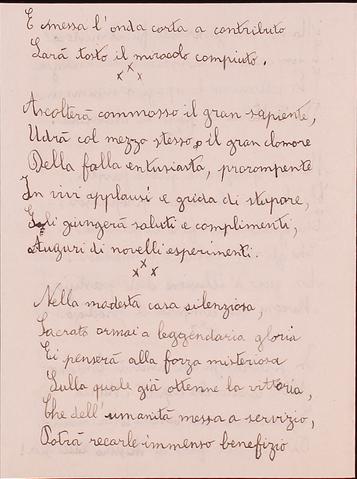 E messa l'onda corta a contributo
Sarà tosto il miracolo compiuto.
x x x
Ascolterà commosso il gran sapiente,
Udrà col mezzo stesso il gran clamore
Della folla entusiasta, prorompente
In vivi applausi e grida di stupore,
Egli giungerà saluti e complimenti,
Auguri di novelli esperimenti.
x x x
Nella modesta casa silenziosa,
Sacrata ormai a leggendaria gloria
Ei penserà alla forza misteriosa
Sulla quale già ottenne la vittoria,
Che dell'umanità messa a servizio,
Potrà recarle immenso benefizio